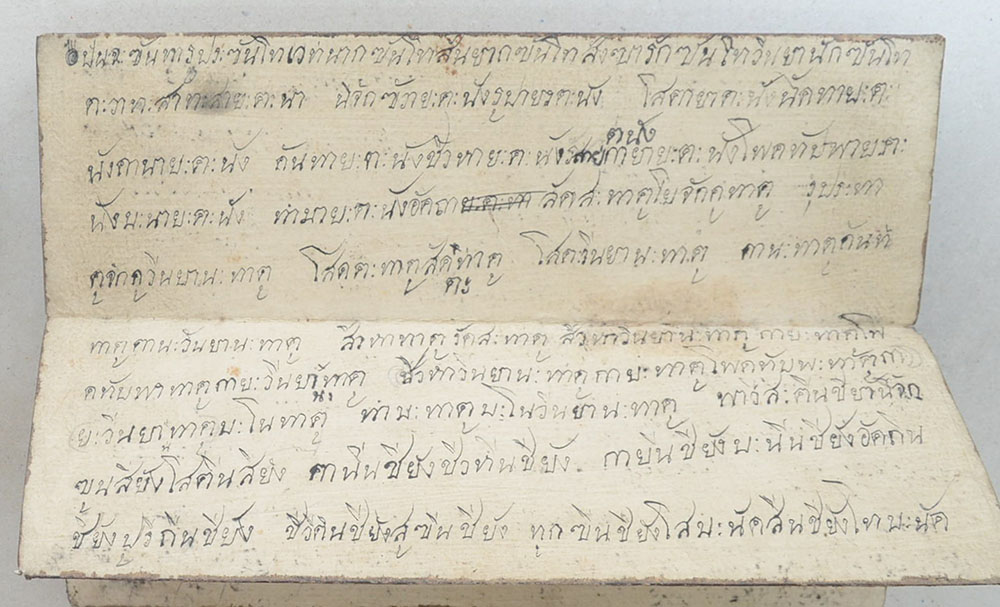 ปันจะขันทารูปะขันโทเวทนากขันโทสันยากขันโทสังขารักขันโทวินยานักขันโท
นิจักขัวายะตะนังรูปายะตะนัง โสตายาตะนังสัดทายะตะ
นังคานายะตะนัง คันทายะตะนังชีวหายะตะนังระสายตะนังกายายะตะนังโพดทับพายะตะ
นังมะนายะตะนัง ทำมายะตะนังอัดถา ลัดสะทาตูโยจักคูทาตู รูปะทา
ตูจักคูวินยานะทาตู โสตะทาตูสัดทะทาตู โสตะวินยานะทาตู คานะทาตูคันทะ
ทาตูคานะวินยานะทาตู สีวหาทาตูรัดสะทาตู สีวหาวินยานะทาตูกายะทาตูโพ
ดทับพาทาตูกายะวินยานะทาตู ชีวหาวินยานะทาตูกายะทาตูโพดทับพะทาตูกา
ยะวินยาทาตูมะโนทาตู ทำมะทาตูมะโนวินยานะทาตู พาวีสะตินชียานิจัก
ขุนสียังโสตินสียัง คานินชียังชีวหินชียัง กายินชียังมะนินชียังอัดถิน
ชียังปูริถินชียัง ชีวิตินชียังสูขินชียัง ทูกขินชียังโสมะนัดสินชียังโทมะนัด